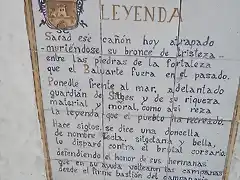 LEYENDA
Sacad ese cañón hoy atrapado
muriéndose su bronce de tristeza
entre las piedras de la fortaleza
que el Baluarte fuera en el pasado.
Ponedle frente al mar, adelantado
guardián de Sitges y de su riqueza
material y moral, como así reza
la leyenda que el pueblo ha recreado.
Hace siglos, se dice una doncella
de nombre Tecla, sitgetana y bella,
lo disparó contra el brulot corsario,
defendiendo el honor de sus hermanas
que en su ayuda voltearon las campanas
desde el firme bastión del campanario